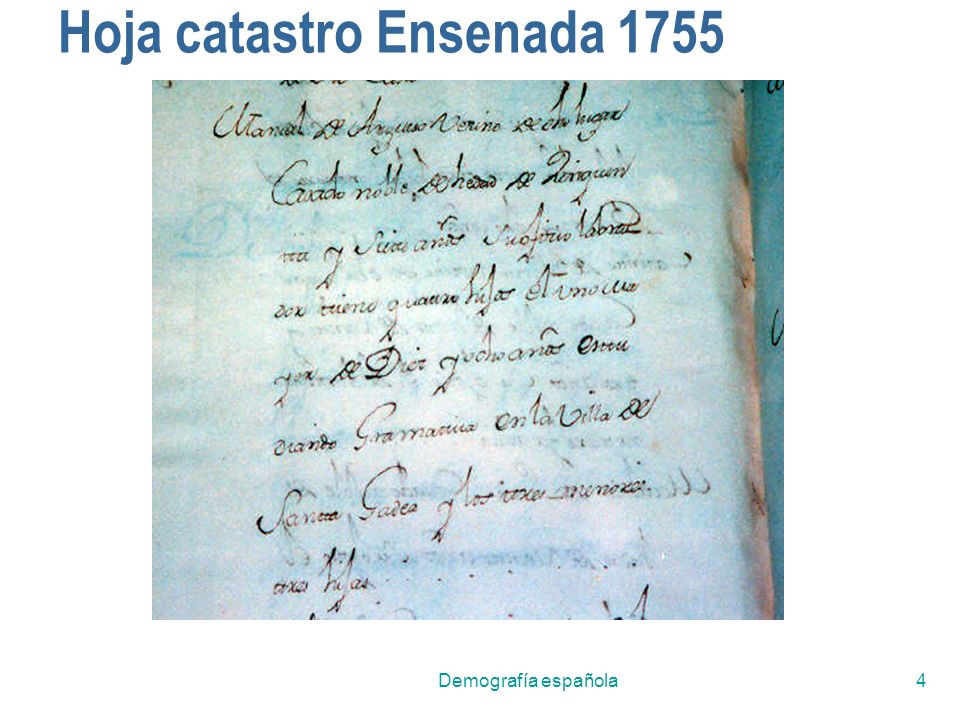 Hoja catastro Ensenada 1755
Manuel de Argueso Vezino de dho lugar
Casado noble, de hedad de Zinquen
ta y Siete años Su ofizio labra
dor tiene quatro hijos el Uno ma
yor de Diez y ocho años estu
diando Gramatica en la Villa de
Santa Gadea y los tres menores
tres hijas
Demografía española
4